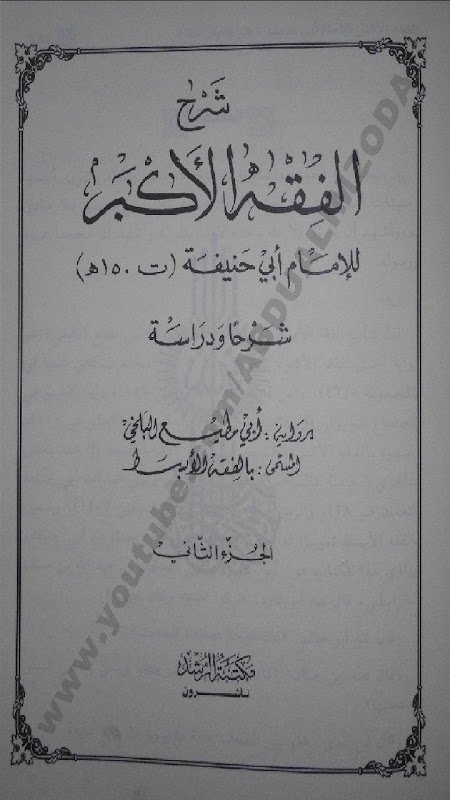 شَرْح
الفِقْه الأَكْبَر
للإمَام أَبي حَنيفَة (ت ١٥٠ هـ)
شَرْحًا وَدِرَاسَة
برواية: أبي مطيع البلخي
المسمى: بالفقه الأبسط
الجُزْء الثَّاني
مكتبة الرشد
ناشرون
www.youtube.com/ABDUALIMZODA